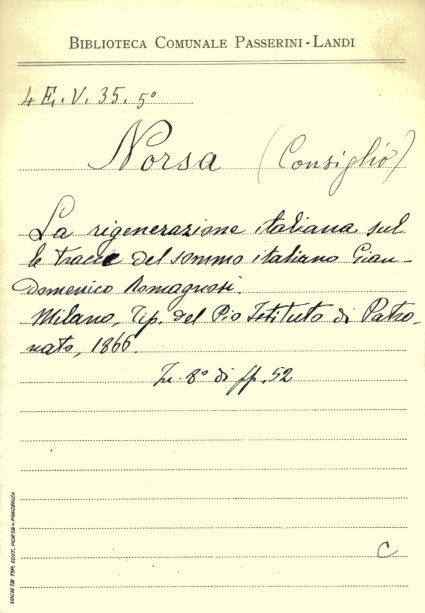 BIBLIOTECA COMUNALE PASSERINI-LANDI
4 E. V. 35. 5°
Norsa (Consiglio)
La rigenerazione italiana sul
le tracce del sommo italiano Gian-
Domenico Romagnosi.
Milano, Tip. del Pio Istituto di Patro-
nato, 1866.
In-8° di pp. 52
C
SOCIETÀ TIP. EDIT. PORTA-PIACENZA